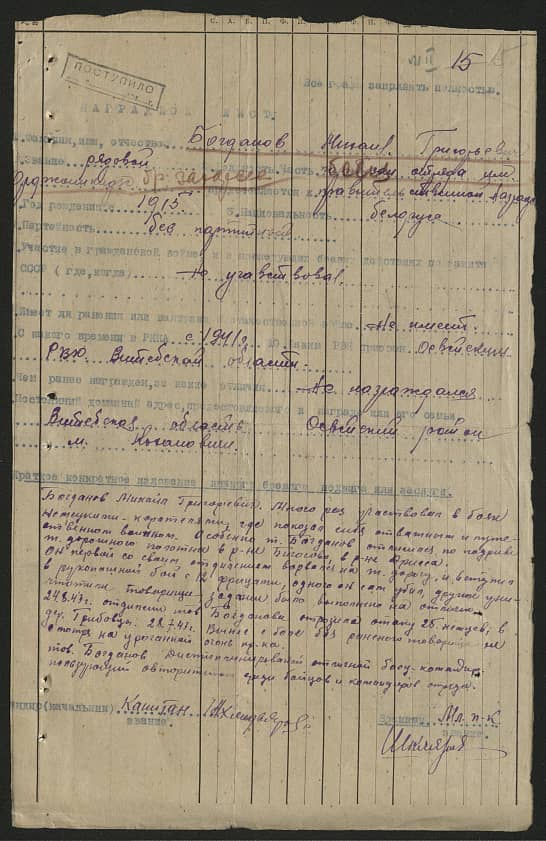 15
15
ПОСТУПИЛО
Все графы заполнять полностью.
НАГРАДНОЙ ЛИСТ.
1. Фамилия, имя, отчество Богданов Михаил Григорьевич
звание рядовой часть боец отряда им.
Орджоникидзе бр.
правительственной награде
Год рождения 1915 5. Национальность белорус
Партийность без партийный
Участие в гражданской войне и
СССР (где, когда) Не участвовал
Имеет ли ранения Отечественной войне Не имеет
С какого времени в РККА с 1941 г. Каким РВК призван Освейским
РВК Витебской области
Чем ранее награжден, за какие отличия Не награждался
Постоянный домашний адрес, представляемого к награде или его семьи
Витебская область Освейский район
м. Кохановичи
Краткое конкретное изложение личного боевого подвига или заслуги.
Богданов Михаил Григорьевич. Много раз участвовал в боях
с немецкими карателями, где показал себя отважным и
воином. Особенно т. Богданов отличился по подрыве
ж. дорожного полотна в р-не Бигосова, в р-не Дрисса.
Он первой со своим отделением ворвался на ж. дорогу, и вступил
в рукопашной бой с 12 фрицами, одного он сам убил, другой уни-
чтожили товарищи, задание было выполнено на отлично.
24.8.43г. отделение тов. Богданова отразила атаку 25 немцев, в
дер. Грибовцы. 28.7.43г. Вынес с поле боя раненого товарища не
смотря на ураганной огонь пр-ка.
тов. Богданов Дисциплинированной отличной боец, командир,
пользующий авторитетом среди бойцов и командиров отряда.
Командир (начальник) Капитан
звание.
Мл. п-к
звание.